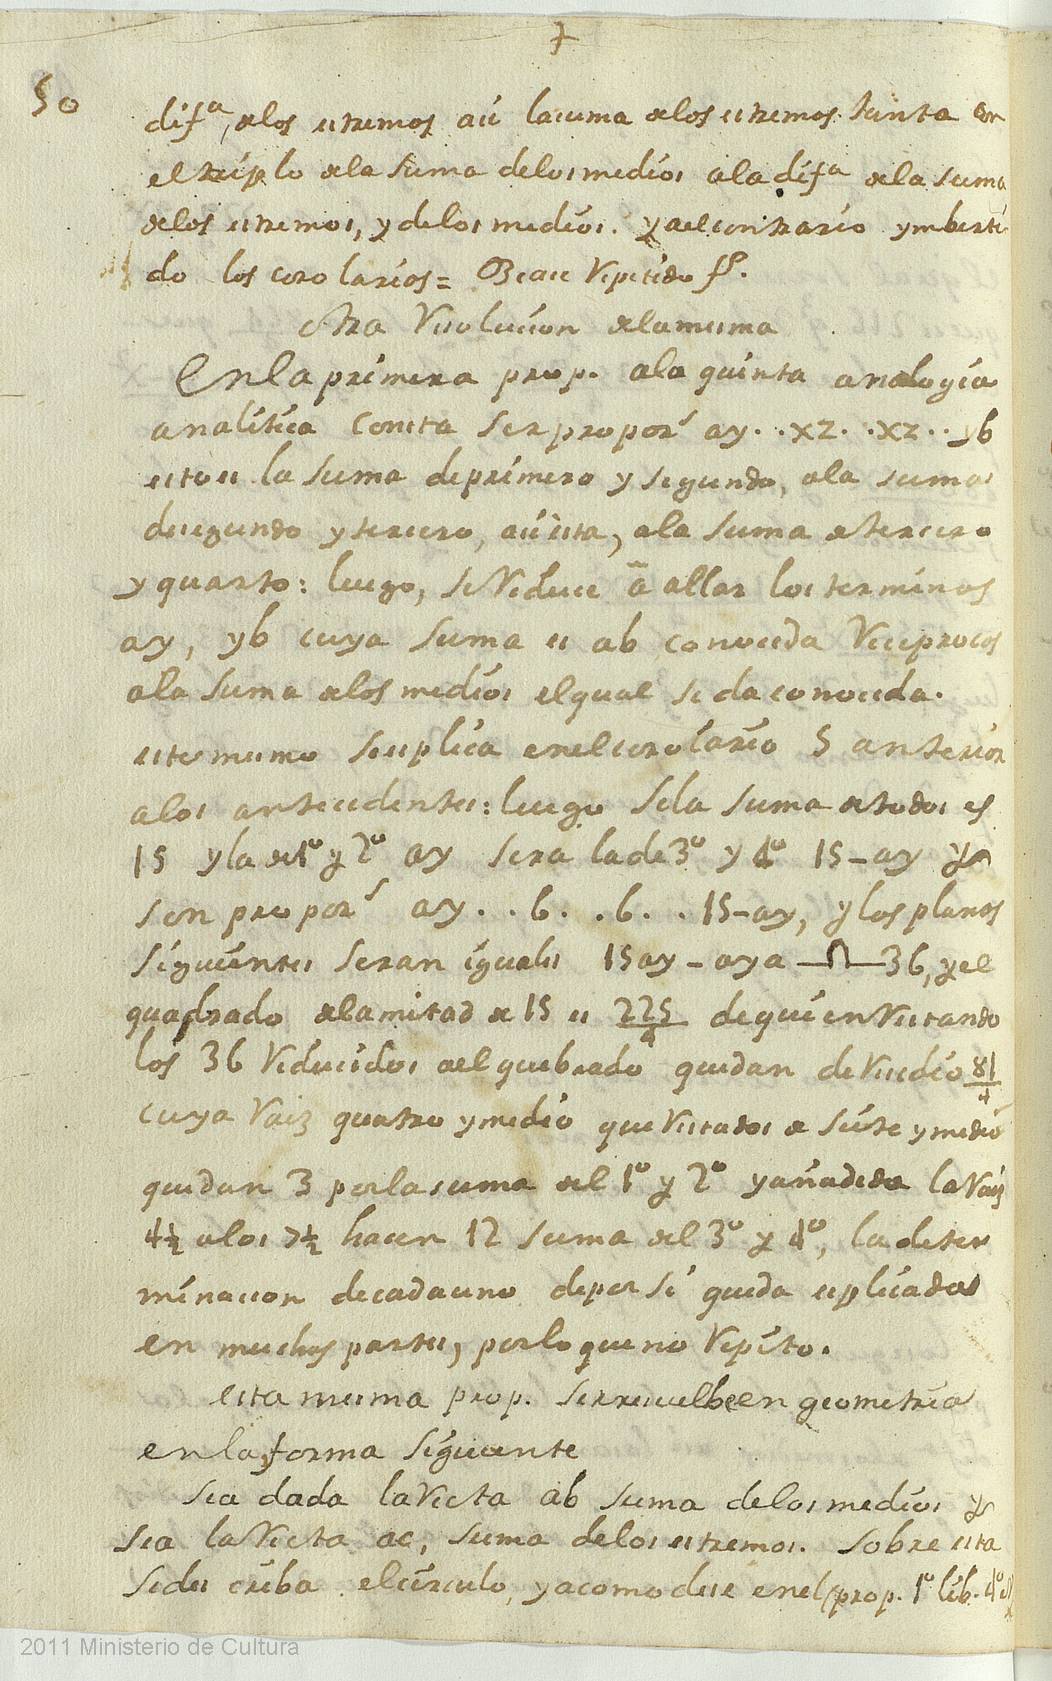 50
difª, de los estremos asi la suma de los estremos junta con
el triplo de la suma de los medios a la difª de la suma
de los estremos, y de los medios. y al contrario ymberti
do los corolarios =
Otra Resolucion de la misma
En la primera prop. a la quinta analogia
analitica consta ser propors ay . . xz . . xz . . yb
esto es la suma de primero y segundo, a la suma
de segundo y tercero, asi esta, a la suma de tercero
y quarto: luego, se Reduce a allar los terminos
ay, yb cuya suma es ab conocida Reciprocos
a la suma de los medios el qual se da conocida.
esto mismo se esplica en el corolario 5 anterior
a los antecedentes: luego si la suma de todos es
15 y la de 1º y 2º ay sera la de 3º y 4º 15-ay y
son propors ay . . 6 . . 6 . . 15-ay, y los planos
siguientes seran iguales 15ay - aya 36, y el
quadrado de la mitad de 15 es 225/4 de quien Restando
los 36 Reducidos a el quebrado quedan de Residio 81/4
cuya Raiz quatro y medio que Restados de siete y medio
quedan 3 por la suma del 1º y 2º y añadida la Raiz
4½ a los 7½ hacen 12 suma del 3º y 4º, la deter
minacion de cada uno de por si queda esplicada
en muchas partes, por lo que no Repito.
esta misma prop. se rresuelbe en geometria
en la forma siguiente
sea dada la Recta ab suma de los medios y
sea la Recta ac, suma de los estremos. sobre esta
se des criba el circulo, y acomodese en el (prop. 1º lib. 4º
2011 Ministerio de Cultura